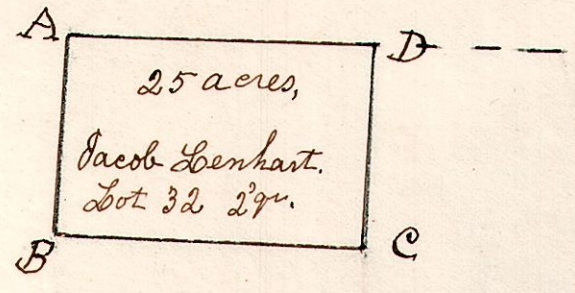 A D
25 acres,
Jacob Lenhart.
Lot 32 2'qr.
B C